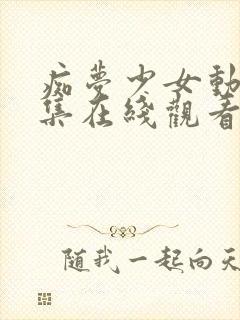 痴夢少女動
集在綫觀看
随我一起向天